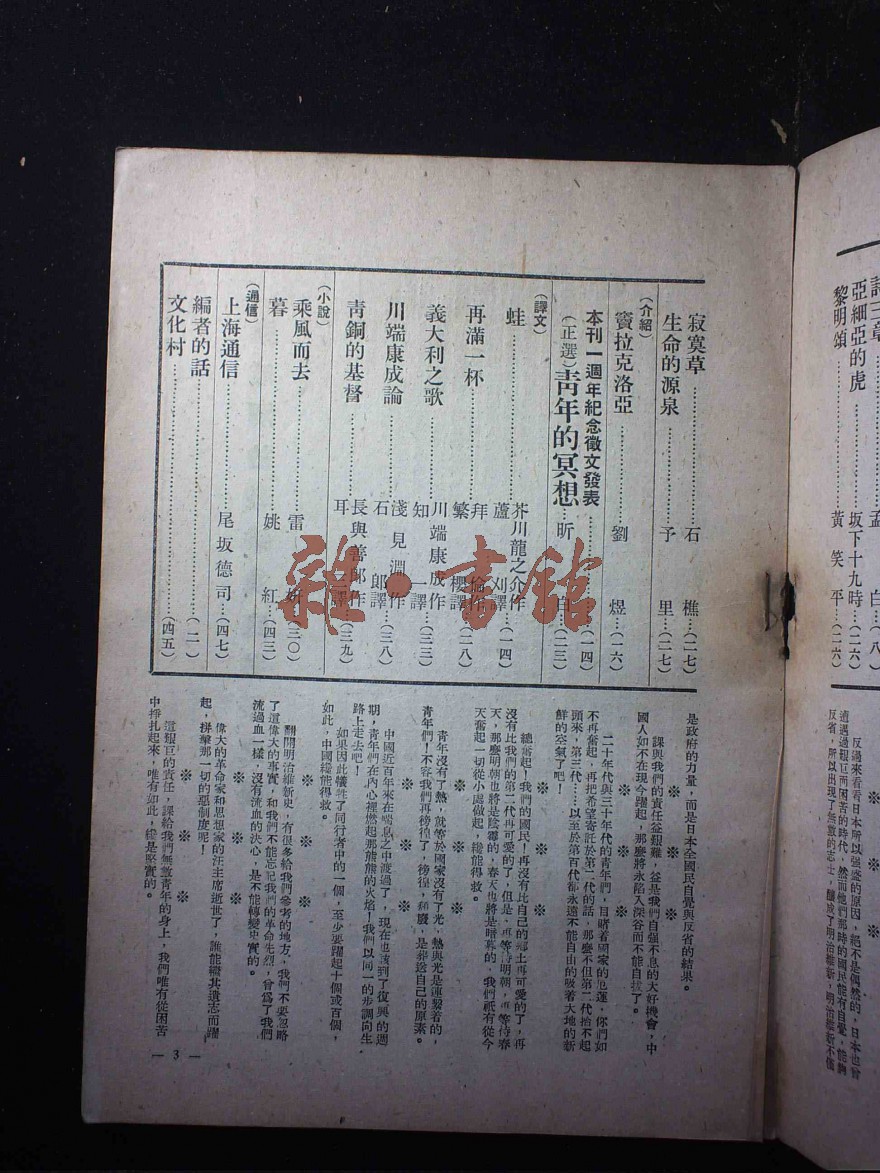 亞細亞的虎…………坂下十九時…(二六)
黎明頌…………黃笑平…(二六)
反過來看看日本所以強盛的原因，絕不是偶然的，日本也曾
遭遇過艱叵而困苦的時代，然而他們那時的國民能有自覺，能夠
反省，所以出現了無數的志士，釀成了明治維新，明治維新不僅
寂寞草…………石樵…(二七)
生命的源泉…………予里…(二七)
(介紹)
竇拉克洛亞…………劉煜…(二六)
本刊一週年紀念徵文發表…………(二四)
(正選)青年的冥想…昕白…(二三)
(譯文)
蛙…………芥川龍之介作
蘆刈譯…(一四)
再滿一杯…………拜倫作
繁櫻譯…(二八)
義大利之歌…………川端康成作
知一譯…(三三)
川端康成論…………淺見淵作
石郎譯…(三八)
青銅的基督…………長與善郎作
耳三譯…(三九)
(小說)
乘風而去…………雷妍…(三〇)
暮…………姚紅…(四三)
(通信)
上海通信…………尾坂德司…(四七)
編者的話…………(二一)
文化村…………(四五)
是政府的力量，而是日本全國民自覺與反省的結果。
課與我們的責任益艱難，益是我們自強不息的大好機會，中
國人如不在現今躍起，那麼將永陷入深谷而不能自拔了。
二十年代與三十年代的青年們，目睹着國家的危運，你們如
不再奮起，再把希望寄託於第二代的話，那麼不但第二代抬不起
頭來，第三代……以至於第百代都永遠不能自由的吸着大地的新
鮮的空氣了吧！
※　※　※
總奮起！我們的國民！再沒有比自己的鄉土再可愛的了，再
沒有比我們的第二代再可愛的了，但是，再等待明朝，再等待春
天，那麼明朝也將是陰霾的，春天也將是暗暮的，我們祇有從今
天奮起一切從小處做起，纔能得救。
※　※　※
青年沒有了熱，就等於國家沒有了光，熱與光是連繫着的，
青年們！不容我們再徬徨了，徬徨，頹廢，是葬送自己的原素。
中國近百年來在喘息之中渡過了，現在也該到了復興的週
期，青年們在內心裡燃起那熊熊的火焰！我們以同一的步調向生
路上走去吧！
如果因此犧牲了同行者中的一個，至少要躍起十個或百個，
如此，中國纔能得救。
※　※　※
翻開明治維新史，有很多給我們參考的地方，我們不要忽略
了這偉大的事實，和我們不能忘記我們的革命先烈，曾為了我們
流過血一樣，沒有流血的決心，是不能轉變史實的。
※　※　※
偉大的革命家和思想家的汪主席逝世了，誰能繼其遺志而躍
起，摒棄那一切的惡制度呢！
※　※　※
這艱叵的責任，課給我們無數青年的身上，我們唯有從困苦
中掙扎起來，唯有如此，纔是堅實的。
— 3 —
雜·書館